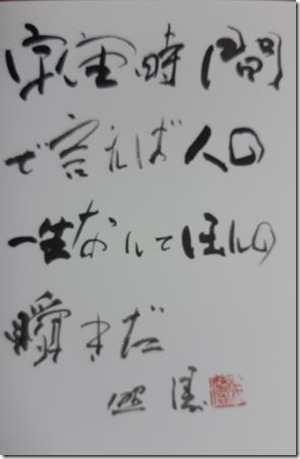 宇宙時間
で言えば人の
一生なんてほんの
瞬きだ